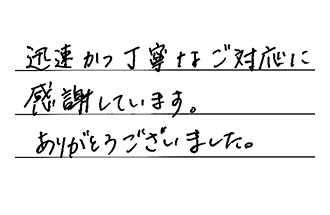 迅速かつ丁寧なご対応に
感謝しています。
ありがとうございました。